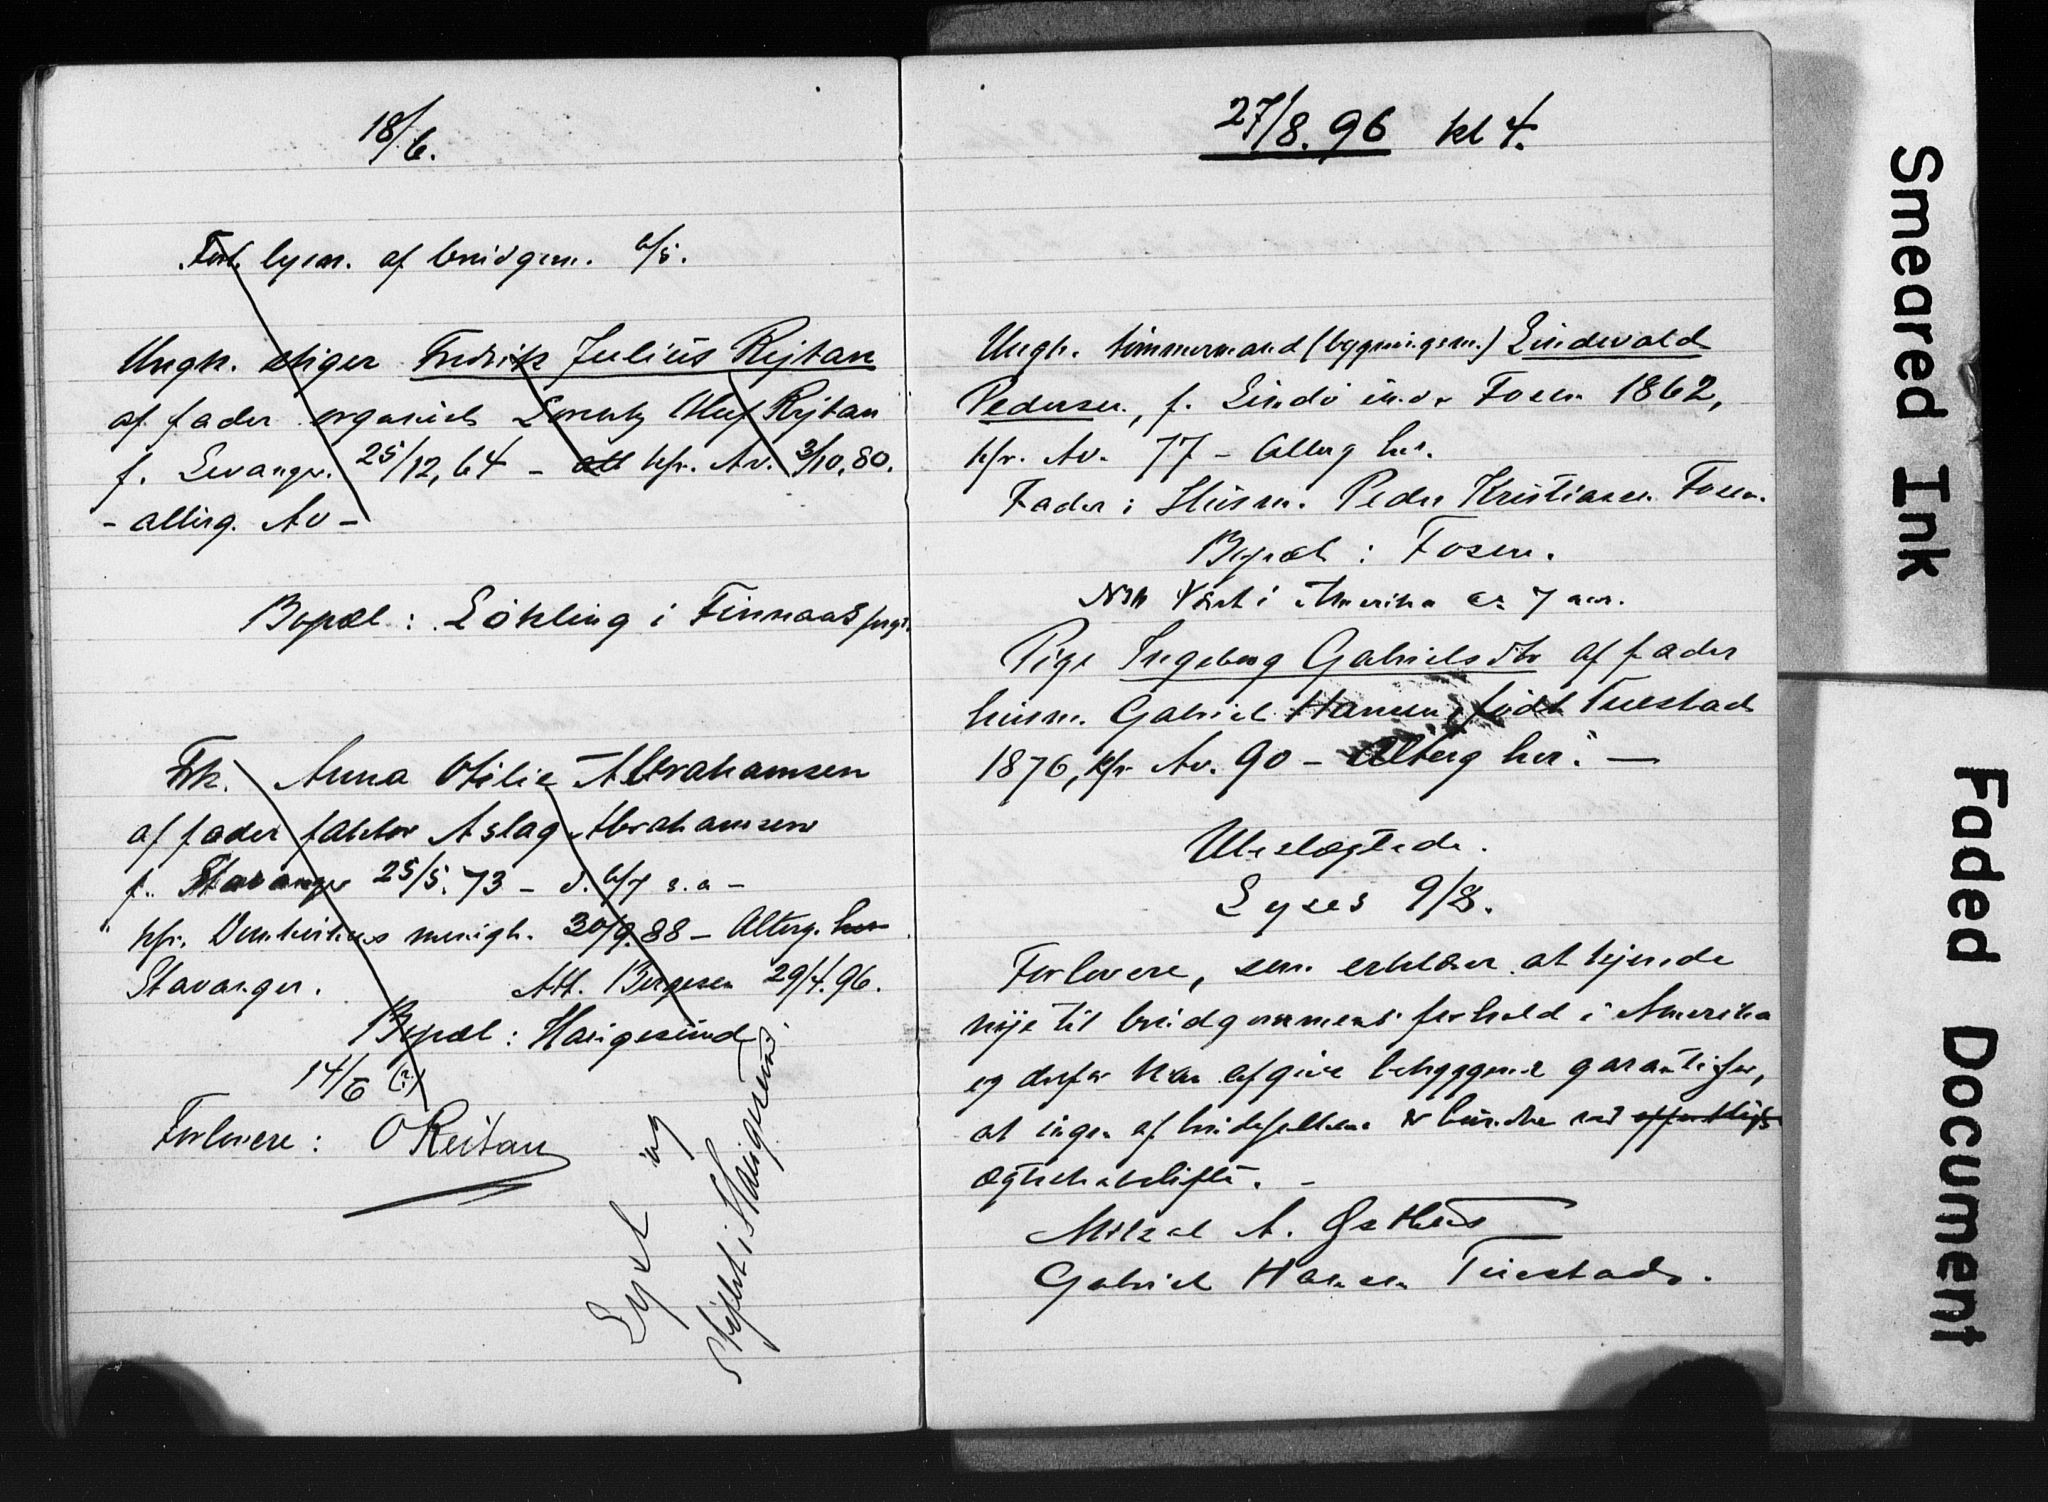 18/6.
Fort. lysn. af brudgm. 6/5.
Ungk. stiger Fredrik Julius Rejtan
af fader organist Lorentz Oluf Rejtan
f. Levanger. 25/12, 64 – kfr. Av. 3/10, 80.
– alterg. Av –
Bopæl: Lökling i Finnaas prgj.
Frk. Anna Otilie Abrahamsen
af fader faktor Aslag Abrahamsen
f. Stavanger 25/5. 73 – d. 6/7 s. a –
kfr. Domkirkens menigh. 30/9. 88 – Alterg. her
Stavanger. Att. Borgesen 29/4. 96.
Bopæl: Haugesund
14/6 (?)
Forlovere: O Reitan
Lyst og
viet i Haugesund.
27/8. 96 kl 4.
Ungk. tømmermand (bygningsm.) Lindevald
Pedersen, f. Lindö Fosen 1862,
kfr. Av. 77 – Alterg her.
Fader: Husm. Peder Kristiansen Fosen.
Bopæl: Fosen.
Været i Amerika ca 7 aar.
Pige Ingeborg Gabrielsdtr af fader
husm. Gabriel Hansen, født Tuestad
1876, kfr Av. 90 – Alterg her. —
Ubeslægtede.
Lyses 9/8.
Forlovere, som erklærer at kjende
nøje til brudgommens forhold i Amerika
og derfor kan afgive betryggende garanti for,
at ingen af brudefolkene er bundne ved
ægteskabsløfte. –
Mikal A.
Gabriel Hansen Tuestad.
Smeared Ink
Faded Document